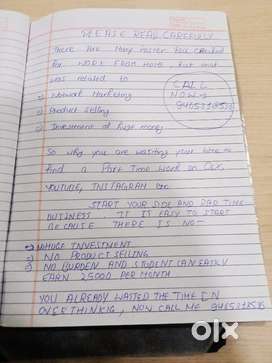 PLEASE READ CAREFULLY
There are Many Poster
for WORK FROM HOME, But that
was related to
CALL
NOW
1) Network Marketing
2) Product Selling
3) Investment of huge money
So why you are wasting your time to
find a Part Time Work on OLX,
YOUTUBE, INSTAGRAM etc.
START YOUR SIDE AND PART TIME
BUSINESS. IT IS EASY TO START
BECAUSE THERE IS NO—
1) NO HUGE INVESTMENT
2) NO PRODUCT SELLING
3) NO BURDEN AND STUDENT CAN EASILY
EARN 25000 PER MONTH
YOU ALREADY WASTED THE TIME IN
OVERTHINKING, NOW CALL ME
olx